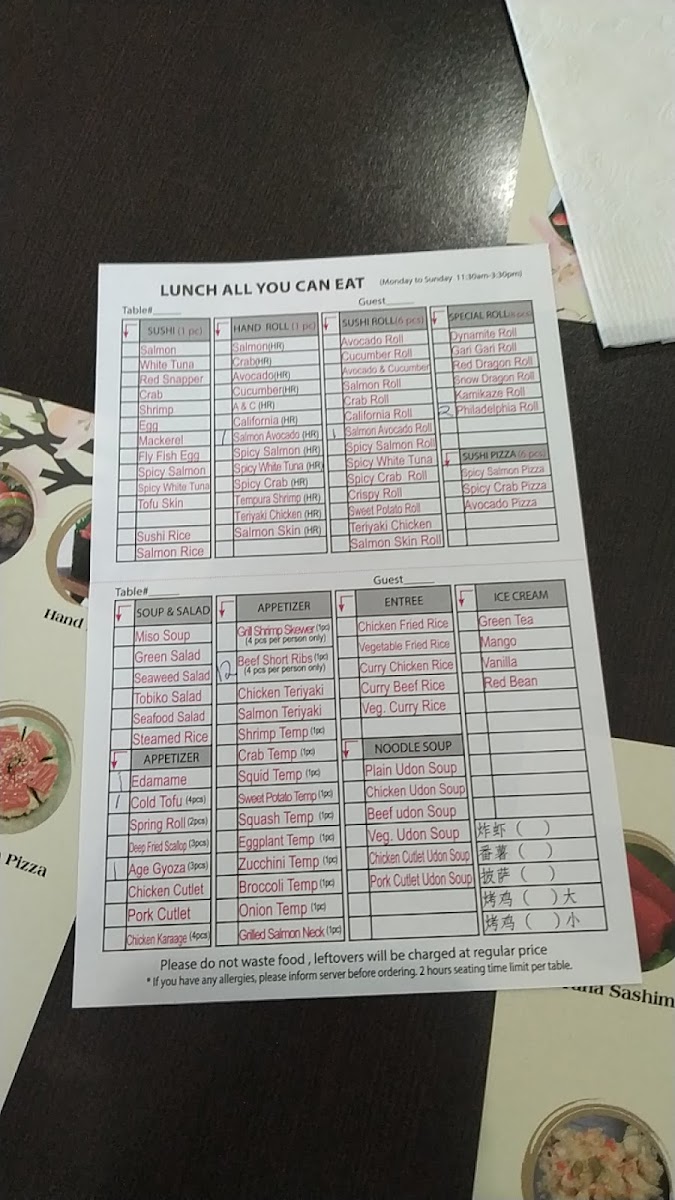 LUNCH ALL YOU CAN EAT (Monday to Sunday 11:30am-3:30pm)
Table#______ Guest______
SUSHI (1 pc)
Salmon
White Tuna
Red Snapper
Crab
Shrimp
Egg
Mackerel
Fly Fish Egg
Spicy Salmon
Spicy White Tuna
Tofu Skin
Sushi Rice
Salmon Rice
HAND ROLL (1 pc)
Salmon(HR)
Crab(HR)
Avocado(HR)
Cucumber(HR)
A & C (HR)
California (HR)
1 Salmon Avocado (HR)
Spicy Salmon (HR)
Spicy White Tuna (HR)
Spicy Crab (HR)
Tempura Shrimp (HR)
Teriyaki Chicken (HR)
Salmon Skin (HR)
SUSHI ROLL(6 pcs)
Avocado Roll
Cucumber Roll
Avocado & Cucumber
Salmon Roll
Crab Roll
California Roll
1 Salmon Avocado Roll
Spicy Salmon Roll
Spicy White Tuna
Spicy Crab Roll
Crispy Roll
Sweet Potato Roll
Teriyaki Chicken
Salmon Skin Roll
SPECIAL ROLL(8 pcs)
Dynamite Roll
Gari Gari Roll
Red Dragon Roll
Snow Dragon Roll
Kamikaze Roll
2 Philadelphia Roll
SUSHI PIZZA (6 pcs)
Spicy Salmon Pizza
Spicy Crab Pizza
Avocado Pizza
Table#______ Guest______
SOUP & SALAD
Miso Soup
Green Salad
Seaweed Salad
Tobiko Salad
Seafood Salad
Steamed Rice
APPETIZER
1 Edamame
1 Cold Tofu (4pcs)
Spring Roll (2pcs)
Deep Fried Scallop (3pcs)
1 Age Gyoza (3pcs)
Chicken Cutlet
Pork Cutlet
Chicken Karaage (4pcs)
APPETIZER
Grill Shrimp Skewer (1pc)
(4 pcs per person only)
12 Beef Short Ribs (1pc)
(4 pcs per person only)
Chicken Teriyaki
Salmon Teriyaki
Shrimp Temp (1pc)
Crab Temp (1pc)
Squid Temp (1pc)
Sweet Potato Temp (1pc)
Squash Temp (1pc)
Eggplant Temp (1pc)
Zucchini Temp (1pc)
Broccoli Temp (1pc)
Onion Temp (1pc)
Grilled Salmon Neck (1pc)
ENTREE
Chicken Fried Rice
Vegetable Fried Rice
Curry Chicken Rice
Curry Beef Rice
Veg. Curry Rice
NOODLE SOUP
Plain Udon Soup
Chicken Udon Soup
Beef udon Soup
Veg. Udon Soup
Chicken Cutlet Udon Soup
Pork Cutlet Udon Soup
ICE CREAM
Green Tea
Mango
Vanilla
Red Bean
炸虾 ( )
番薯 ( )
披萨 ( )
烤鸡 ( )大
烤鸡 ( )小
Please do not waste food , leftovers will be charged at regular price
* If you have any allergies, please inform server before ordering. 2 hours seating time limit per table.
Hand
Pizza
Sashim